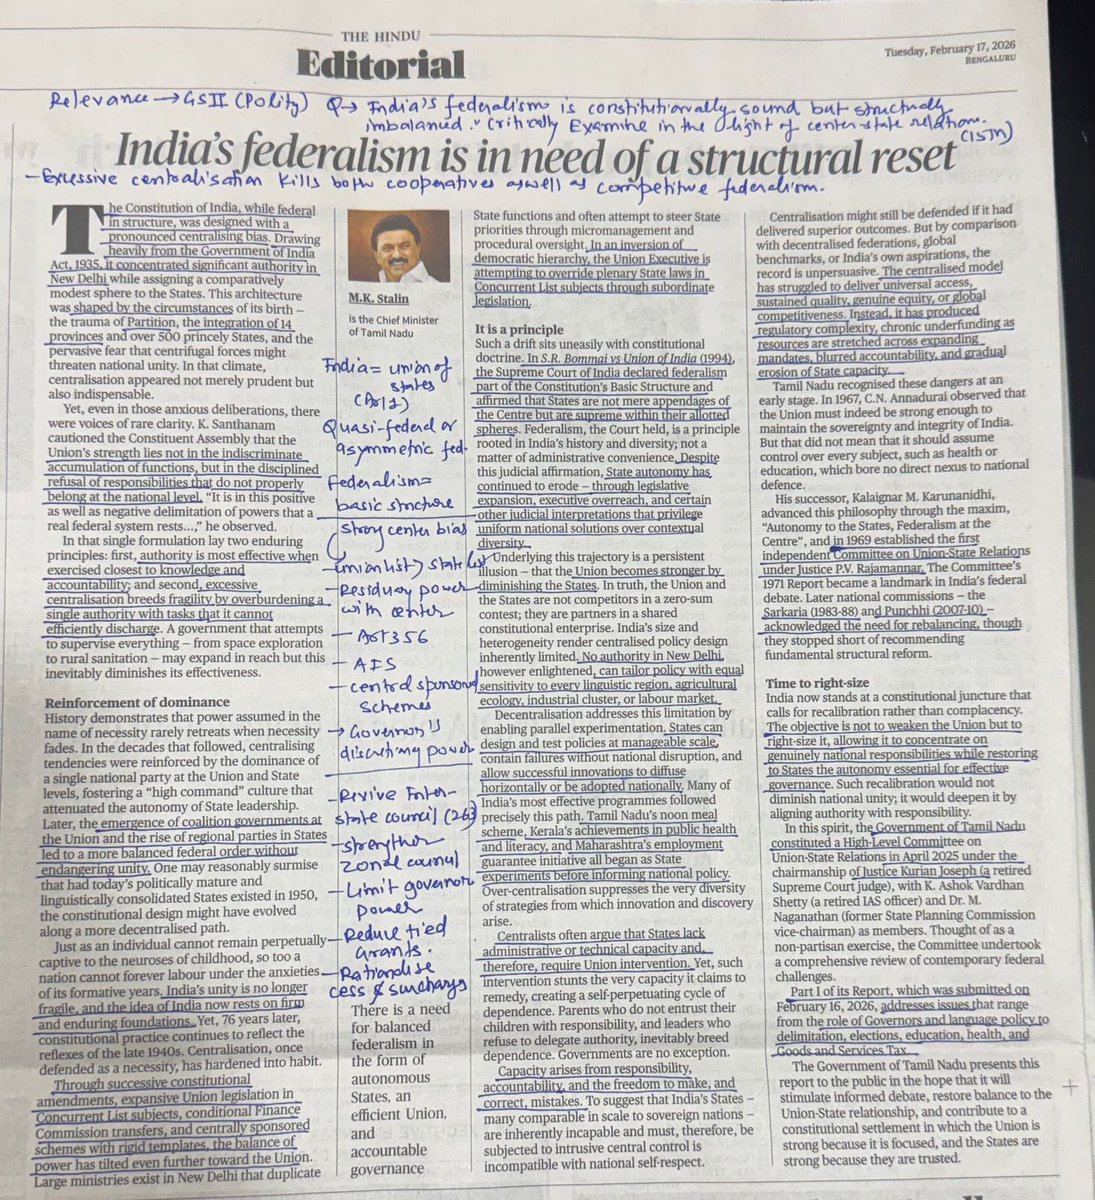 THE HINDU
Editorial
Tuesday, February 17, 2026
BENGALURU
Relevance → GSII (Polity) Q→ India's federalism is constitutionally sound but structually
imbalanced." Critically Examine in the light of center-state relation.
(15M)
India's federalism is in need of a structural reset
- Excessive centralisation kills both cooperatives aswell as competitive federalism.
The Constitution of India, while federal
in structure, was designed with a
pronounced centralising bias. Drawing
heavily from the Government of India
Act, 1935, it concentrated significant authority in
New Delhi while assigning a comparatively
modest sphere to the States. This architecture
was shaped by the circumstances of its birth –
the trauma of Partition, the integration of 14
provinces and over 500 princely States, and the
pervasive fear that centrifugal forces might
threaten national unity. In that climate,
centralisation appeared not merely prudent but
also indispensable.
Yet, even in those anxious deliberations, there
were voices of rare clarity. K. Santhanam
cautioned the Constituent Assembly that the
Union's strength lies not in the indiscriminate
accumulation of functions, but in the disciplined
refusal of responsibilities that do not properly
belong at the national level. "It is in this positive
as well as negative delimitation of powers that a
real federal system rests...," he observed.
In that single formulation lay two enduring
principles: first, authority is most effective when
exercised closest to knowledge and
accountability; and second, excessive
centralisation breeds fragility by overburdening a
single authority with tasks that it cannot
efficiently discharge. A government that attempts
to supervise everything – from space exploration
to rural sanitation – may expand in reach but this
inevitably diminishes its effectiveness.
Reinforcement of dominance
History demonstrates that power assumed in the
name of necessity rarely retreats when necessity
fades. In the decades that followed, centralising
tendencies were reinforced by the dominance of
a single national party at the Union and State
levels, fostering a "high command" culture that
attenuated the autonomy of State leadership.
Later, the emergence of coalition governments at
the Union and the rise of regional parties in States
led to a more balanced federal order without
endangering unity. One may reasonably surmise
that had today's politically mature and
linguistically consolidated States existed in 1950,
the constitutional design might have evolved
along a more decentralised path.
Just as an individual cannot remain perpetually
captive to the neuroses of childhood, so too a
nation cannot forever labour under the anxieties
of its formative years. India's unity is no longer
fragile, and the idea of India now rests on firm
and enduring foundations. Yet, 76 years later,
constitutional practice continues to reflect the
reflexes of the late 1940s. Centralisation, once
defended as a necessity, has hardened into habit.
Through successive constitutional
amendments, expansive Union legislation in
Concurrent List subjects, conditional Finance
Commission transfers, and centrally sponsored
schemes with rigid templates, the balance of
power has tilted even further toward the Union.
Large ministries exist in New Delhi that duplicate
M.K. Stalin
is the Chief Minister
of Tamil Nadu
India = union of
states
(Art 1)
Quasi-federal or
asymmetric fed.
Federalism =
basic structure
strong center bias
- Union list > state list
- Residuary power
with center
- Art 356
- AIS
- central sponsored
schemes
→ Governor's
discretinary power
- Revive Inter-
state council (263)
- strengthen
zonal council
- Limit governor
power
- Reduce tied
grants.
- Rationalise
cess & surcharges
There is a need
for balanced
federalism in
the form of
autonomous
States, an
efficient Union,
and
accountable
governance
State functions and often attempt to steer State
priorities through micromanagement and
procedural oversight. In an inversion of
democratic hierarchy, the Union Executive is
attempting to override plenary State laws in
Concurrent List subjects through subordinate
legislation.
It is a principle
Such a drift sits uneasily with constitutional
doctrine. In S.R. Bommai vs Union of India (1994),
the Supreme Court of India declared federalism
part of the Constitution's Basic Structure and
affirmed that States are not mere appendages of
the Centre but are supreme within their allotted
spheres. Federalism, the Court held, is a principle
rooted in India's history and diversity; not a
matter of administrative convenience. Despite
this judicial affirmation, State autonomy has
continued to erode – through legislative
expansion, executive overreach, and certain
other judicial interpretations that privilege
uniform national solutions over contextual
diversity.
Underlying this trajectory is a persistent
illusion – that the Union becomes stronger by
diminishing the States. In truth, the Union and
the States are not competitors in a zero-sum
contest; they are partners in a shared
constitutional enterprise. India's size and
heterogeneity render centralised policy design
inherently limited. No authority in New Delhi,
however enlightened, can tailor policy with equal
sensitivity to every linguistic region, agricultural
ecology, industrial cluster, or labour market.
Decentralisation addresses this limitation by
enabling parallel experimentation. States can
design and test policies at manageable scale,
contain failures without national disruption, and
allow successful innovations to diffuse
horizontally or be adopted nationally. Many of
India's most effective programmes followed
precisely this path. Tamil Nadu's noon meal
scheme, Kerala's achievements in public health
and literacy, and Maharashtra's employment
guarantee initiative all began as State
experiments before informing national policy.
Over-centralisation suppresses the very diversity
of strategies from which innovation and discovery
arise.
Centralists often argue that States lack
administrative or technical capacity and,
therefore, require Union intervention. Yet, such
intervention stunts the very capacity it claims to
remedy, creating a self-perpetuating cycle of
dependence. Parents who do not entrust their
children with responsibility, and leaders who
refuse to delegate authority, inevitably breed
dependence. Governments are no exception.
Capacity arises from responsibility,
accountability, and the freedom to make, and
correct, mistakes. To suggest that India's States –
many comparable in scale to sovereign nations –
are inherently incapable and must, therefore, be
subjected to intrusive central control is
incompatible with national self-respect.
Centralisation might still be defended if it had
delivered superior outcomes. But by comparison
with decentralised federations, global
benchmarks, or India's own aspirations, the
record is unpersuasive. The centralised model
has struggled to deliver universal access,
sustained quality, genuine equity, or global
competitiveness. Instead, it has produced
regulatory complexity, chronic underfunding as
resources are stretched across expanding
mandates, blurred accountability, and gradual
erosion of State capacity.
Tamil Nadu recognised these dangers at an
early stage. In 1967, C.N. Annadurai observed that
the Union must indeed be strong enough to
maintain the sovereignty and integrity of India.
But that did not mean that it should assume
control over every subject, such as health or
education, which bore no direct nexus to national
defence.
His successor, Kalaignar M. Karunanidhi,
advanced this philosophy through the maxim,
"Autonomy to the States, Federalism at the
Centre", and in 1969 established the first
independent Committee on Union-State Relations
under Justice P.V. Rajamannar. The Committee's
1971 Report became a landmark in India's federal
debate. Later national commissions – the
Sarkaria (1983-88) and Punchhi (2007-10) –
acknowledged the need for rebalancing, though
they stopped short of recommending
fundamental structural reform.
Time to right-size
India now stands at a constitutional juncture that
calls for recalibration rather than complacency.
The objective is not to weaken the Union but to
right-size it, allowing it to concentrate on
genuinely national responsibilities while restoring
to States the autonomy essential for effective
governance. Such recalibration would not
diminish national unity; it would deepen it by
aligning authority with responsibility.
In this spirit, the Government of Tamil Nadu
constituted a High-Level Committee on
Union-State Relations in April 2025 under the
chairmanship of Justice Kurian Joseph (a retired
Supreme Court judge), with K. Ashok Vardhan
Shetty (a retired IAS officer) and Dr. M.
Naganathan (former State Planning Commission
vice-chairman) as members. Thought of as a
non-partisan exercise, the Committee undertook
a comprehensive review of contemporary federal
challenges.
Part I of its Report, which was submitted on
February 16, 2026, addresses issues that range
from the role of Governors and language policy to
delimitation, elections, education, health, and
Goods and Services Tax.
The Government of Tamil Nadu presents this
report to the public in the hope that it will
stimulate informed debate, restore balance to the
Union-State relationship, and contribute to a
constitutional settlement in which the Union is
strong because it is focused, and the States are
strong because they are trusted.